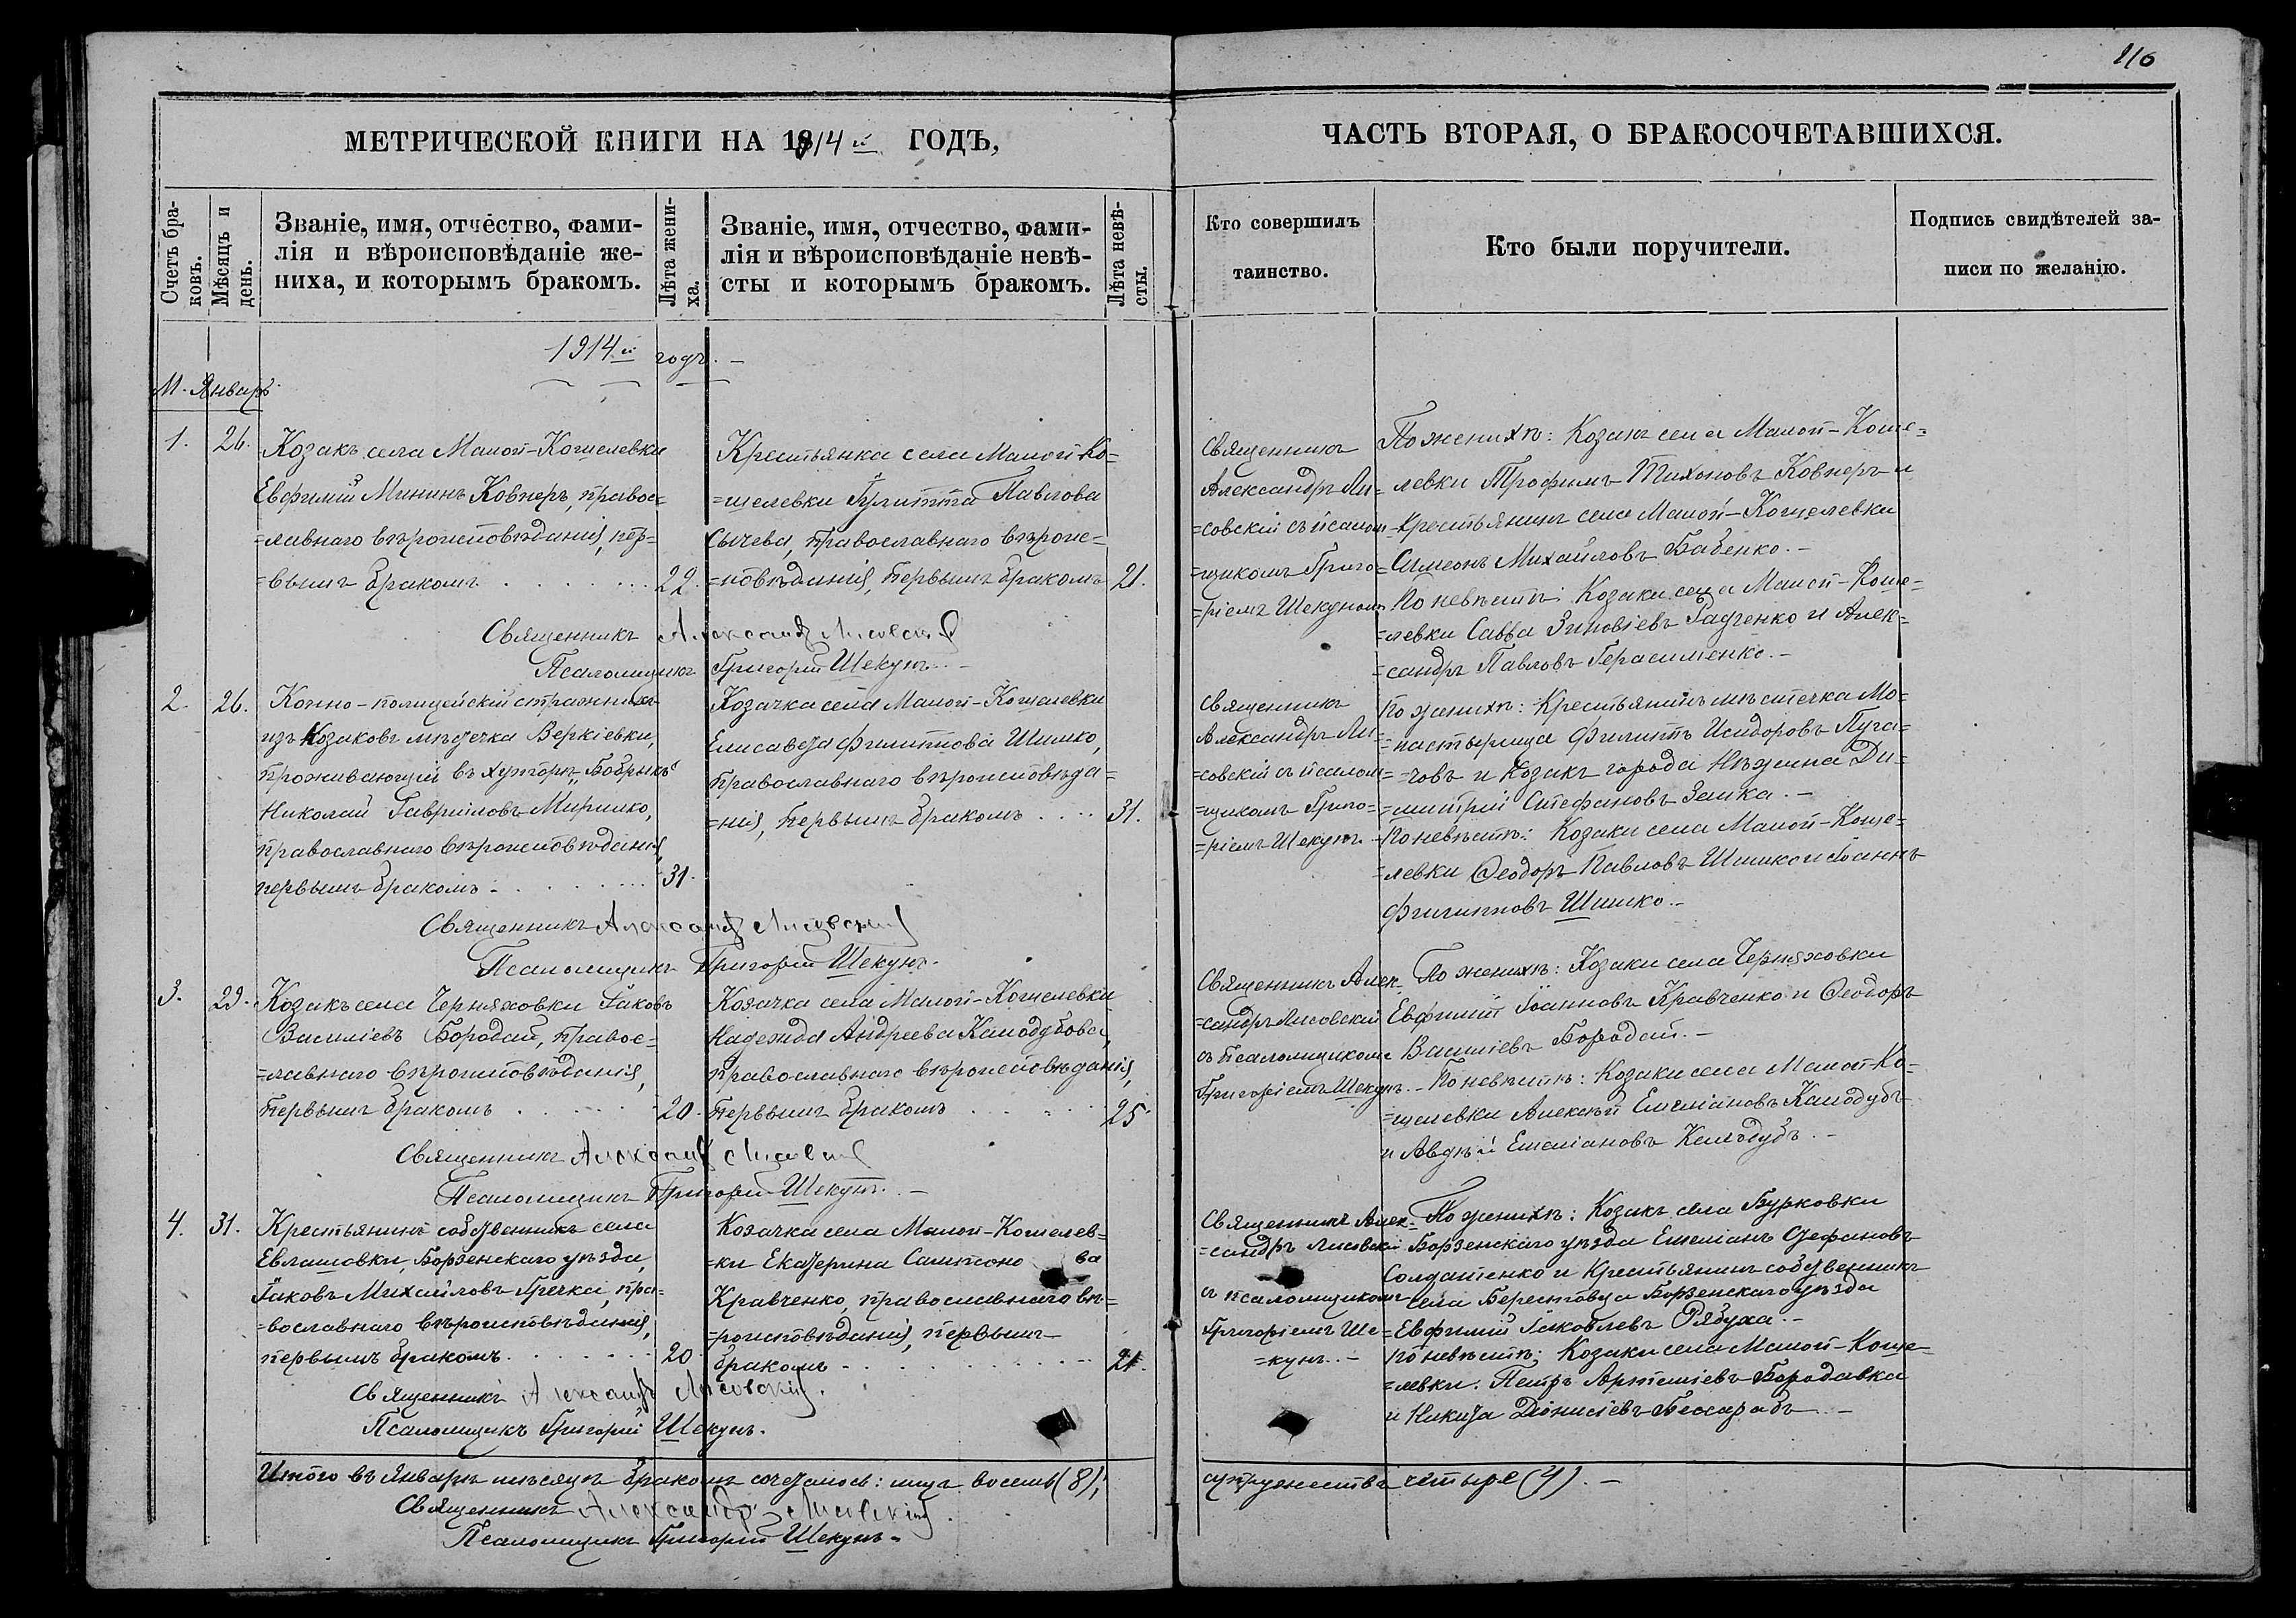 216
МЕТРИЧЕСКОЙ КНИГИ НА 1914й ГОДЪ,
ЧАСТЬ ВТОРАЯ, О БРАКОСОЧЕТАВШИХСЯ.
Счетъ бра-
ковъ.
Мѣсяцъ и
день.
Званіе, имя, отчество, фами-
лія и вѣроисповѣданіе же-
ниха, и которымъ бракомъ.
Лѣта жени-
ха.
Званіе, имя, отчество, фами-
лія и вѣроисповѣданіе невѣ-
сты и которымъ бракомъ.
Лѣта невѣ-
сты.
Кто совершилъ
таинство.
Кто были поручители.
Подпись свидѣтелей за-
писи по желанію.
1914й годъ. –
М. Январь
1. 26.
Козакъ села Малой-Кошелевки
Евфимій Мининъ Ковнеръ, правос=
=лавнаго вѣроисповѣданія, пер=
=вымъ бракомъ 22.
Крестьянка села Малой-Ко=
=шелевки Павлова
Сычева, православнаго вѣроис=
=повѣданія, первымъ бракомъ 21.
Священникъ
Александръ Ли=
=совскій съ псалом
=щикомъ Григо=
=ріемъ Шекуномъ
По женихѣ: Козакъ села Малой-Коше=
левки Трофимъ Тихоновъ Ковнеръ и
Крестьянинъ села Малой-Кошелевки
Симеонъ Михайловъ Бабенко. –
По невѣстѣ: Козаки села Малой-Коше=
=левки Савва Зиновіевъ Радченко и Алек=
=сандръ Павловъ Герасименко. –
Священникъ Александръ Лисовскій
Псаломщикъ Григорій Шекунъ. –
2. 26.
Конно-полицейскій стражникъ
изъ Козаковъ мѣстечка Веркіевки,
проживающій въ хуторѣ Бобрикъ
Николай Гавріиловъ Миришко,
православнаго вѣроисповѣданія,
первымъ бракомъ 31.
Козачка села Малой-Кошелевки
Елисавета Филиппова Шишко,
православнаго вѣроисповѣда=
=нія, первымъ бракомъ 31.
Священникъ
Александръ Ли=
=совскій съ псалом=
=щикомъ Григо=
=ріемъ Шекунъ. –
По женихѣ: Крестьянинъ мѣстечка Мо=
=настырища Филиппъ Исидоровъ Пуга=
=човъ и Козакъ города Нѣжина Ди=
=митрій Стефановъ Заика. –
По невѣстѣ: Козаки села Малой-Коше=
=левки Ѳеодоръ Павловъ Шишко и Іоаннъ
Филипповъ Шишко. –
Священникъ Александръ Лисовскій
Псаломщикъ Григорій Шекунъ.
3. 29.
Козакъ села Черняховки Іаковъ
Василіевъ Бородай, правос=
=лавнаго вѣроисповѣданія,
первымъ бракомъ 20.
Козачка села Малой-Кошелевки
Надежда Андреева Калодубова,
православнаго вѣроисповѣданія,
первымъ бракомъ 25.
Священникъ Алек=
=сандръ Лисовскій
съ псаломщикомъ
Григоріемъ Шекунъ. –
По женихѣ: Козаки села Черняховки
Евфимій Іоанновъ Кравченко и Ѳеодоръ
Василіевъ Бородай. –
По невѣстѣ: Козаки села Малой-Ко=
=шелевки Алексѣй Емеліановъ Калодубъ
и Авдѣй Емеліановъ Калодубъ. –
Священникъ Александръ Лисовскій
Псаломщикъ Григорій Шекунъ. –
4. 31.
Крестьянинъ собственникъ села
Евлашовки, Борзенскаго уѣзда,
Іаковъ Михайловъ Гречка, пра=
=вославнаго вѣроисповѣданія,
первымъ бракомъ 20.
Козачка села Малой-Кошелев=
=ки Екатерина Сампсоно ва
Кравченко, православнаго вѣ=
=роисповѣданія, первымъ
бракомъ 21.
Священникъ Алек=
=сандръ Лисовскій
съ псаломщикомъ
Григоріемъ Ше=
=кунъ. –
По женихѣ: Козакъ села Бурковки
Борзенскаго уѣзда Емеліанъ Стефановъ
Солдатенко и Крестьянинъ собственникъ
села Берестовца Борзенскаго уѣзда
Евфимій Іаковлевъ Рябуха. –
По невѣстѣ: Козаки села Малой-Коше=
=левки. Петръ Артеміевъ Бородавка
и Никита Діонисіевъ Бессарабъ –
Священникъ Александръ Лисовскій.
Псаломщикъ Григорій Шекунъ.
Итого въ Январѣ мѣсяцѣ бракомъ сочеталось: лицъ восемь (8); супружествъ четыре (4). –
Священникъ Александръ Лисовскій.
Псаломщикъ Григорій Шекунъ.